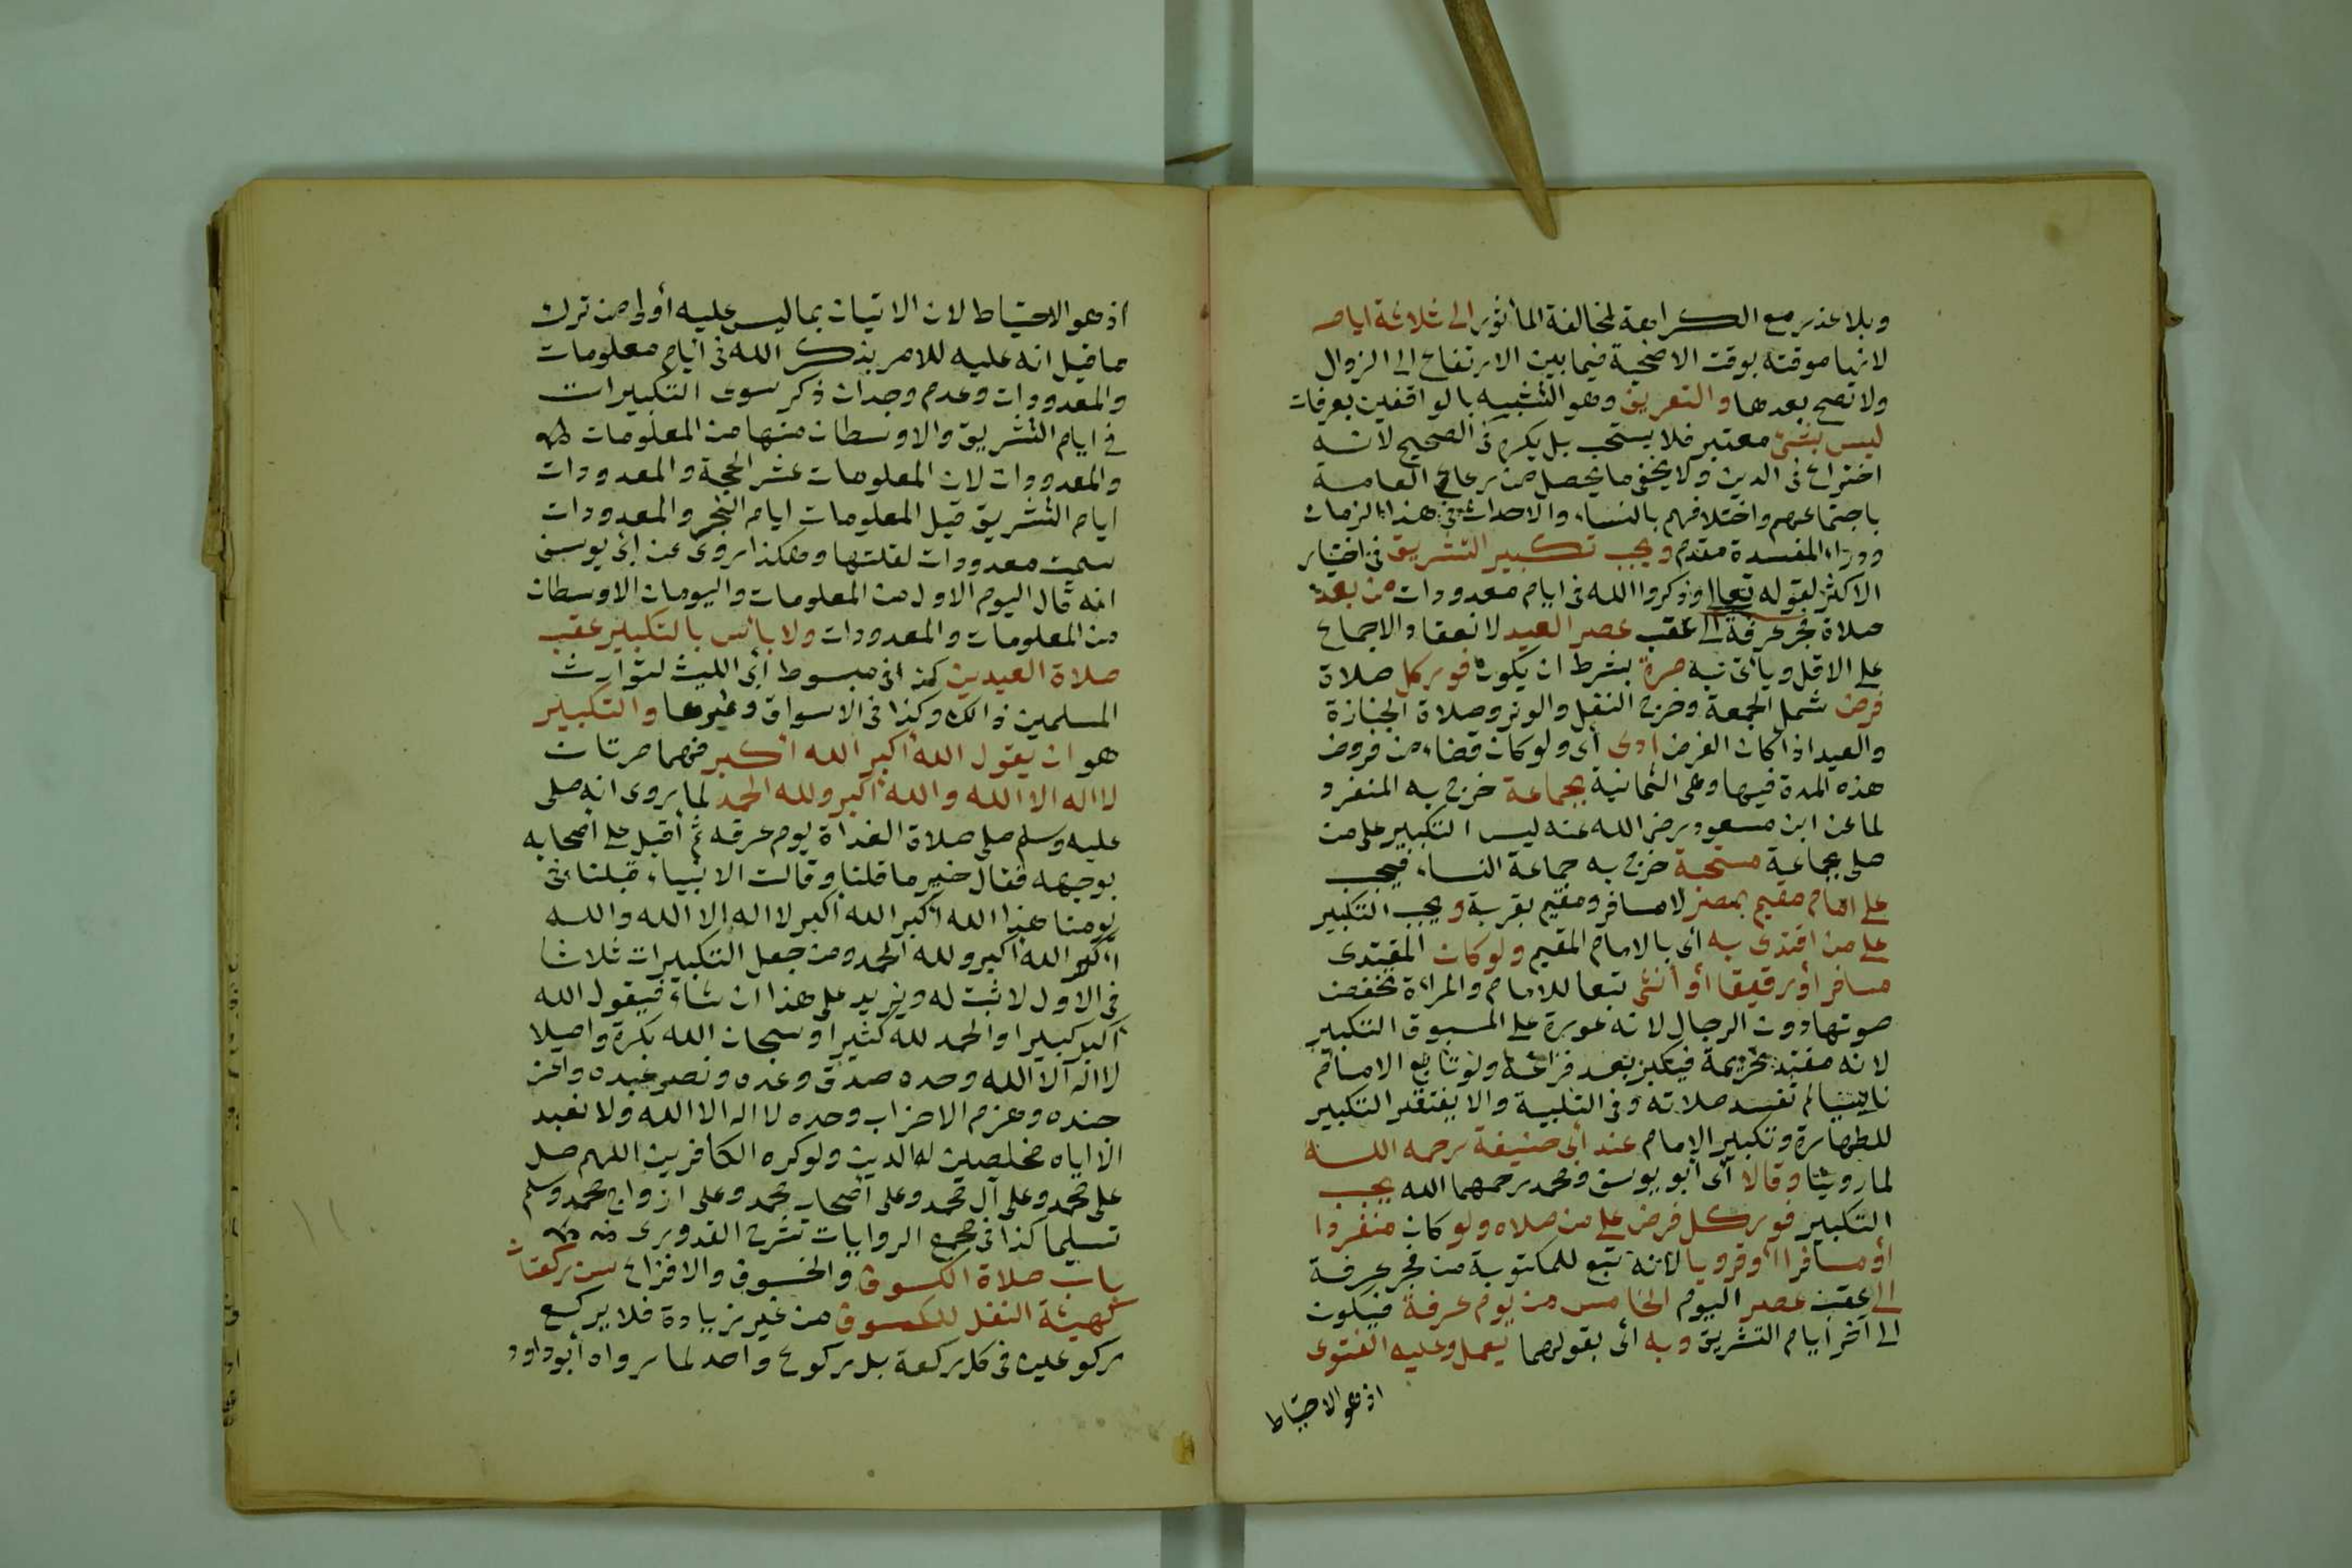 وبلا عذر مع الكراهة لمخالفة المأثور الى ثلاثة ايام
لانها موقتة بوقت الاضحية فيما بين الارتفاع الى الزوال
ولا تصح بعدها والتعريف وهو التشبيه بالواقفين بعرفات
ليس بشئ معتبر فلا يستحب بل يكره فى الصحيح لانه
اختراع فى الدين ولا يخفى ما يحصل من رعاع العامة
باجتماعهم واختلافهم بالنساء والاحداث فى هذا الزمان
ودراء المفسدة مقدم ويجب تكبير التشريق فى اختيار
الاكثر لقوله تعالى واذكروا الله فى ايام معدودات من بعد
صلاة فجر عرفة الى عقب عصر العيد لانعقاد الاجماع
على الاقل ويأتى به مرة بشرط ان يكون فور كل صلاة
فرض شمل الجمعة وخرج النفل والوتر وصلاة الجنازة
والعيد اذا كان الفرض ادى أى ولو كان قضاء من فروض
هذه المدة فيها وهى الثمانية بجماعة خرج به المنفرد
لما عن ابن مسعود رضى الله عنه ليس التكبير على من
صلى بجماعة مستحبة خرج به جماعة النساء فيجب
على امام مقيم بمصر لا مسافر ومقيم بقرية ويجب التكبير
على من اقتدى به أى بالامام المقيم ولو كان المقتدى
مسافرا أو رقيقا أو أنثى تبعا للامام والمراءة تخفض
صوتها دون الرجال لانه عورة على المسبوق التكبير
لانه مقتد تحريمة فيكبر بعد فراغه ولو تابع الامام
ناسيا لم تفسد صلاته وفى التلبية والا يفتقد التكبير
للطهارة وتكبير الامام عند أبى حنيفة رحمه الله
لما روينا وقالا أى أبو يوسف ومحمد رحمهما الله يجب
التكبير فور كل فرض على من صلاه ولو كان منفردا
أو مسافرا أو قرويا لانه تبع للمكتوبة من فجر عرفة
الى عقب عصر اليوم الخامس من يوم عرفة فيكون
الى آخر ايام التشريق وبه أى بقولهما يعمل وعليه الفتوى
اذ هو الاحتياط
اذ هو الاحتياط لان الاتيان بما ليس عليه أولى من ترك
ما قيل انه عليه للامر بذكر الله فى ايام معلومات
والمعدودات وعدم وجدان ذكر سوى التكبيرات
فى ايام التشريق والاوسطان منها من المعلومات
والمعدودات لان المعلومات عشر الحجة والمعدودات
ايام التشريق قيل المعلومات ايام النحر والمعدودات
سميت معدودات لقلتها وهكذا روى عن ابى يوسف
انه قال اليوم الاول من المعلومات واليومان الاوسطان
من المعلومات والمعدودات ولا بأس بالتكبير عقب
صلاة العيدين كذا فى مبسوط أبى الليث لتوارث
المسلمين ذالك وكذا فى الاسواق وغيرها والتكبير
هو ان يقول الله أكبر الله أكبر فهما مرتان
لا اله الا الله والله أكبر ولله الحمد لما روى انه صلى
عليه وسلم صلى صلاة الغداة يوم عرفه ثم أقبل على أصحابه
بوجهه فقال خير ما قلنا وقالت الانبياء قبلنا فى
يومنا هذا الله أكبر الله أكبر لا اله الا الله والله
أكبر الله أكبر ولله الحمد ومن جعل التكبيرات ثلاثا
فى الاول لا ثبت له ويزيد على هذا ان شاء فيقول الله
أكبر كبيرا والحمد لله كثيرا وسبحان الله بكرة واصيلا
لا اله الا الله وحده صدق وعده ونصر عبده واعز
جنده وهزم الاحزاب وحده لا اله الا الله ولا نعبد
الا اياه مخلصين له الدين ولو كره الكافرين اللهم صل
على محمد وعلى آل محمد وعلى أصحاب محمد وعلى ازواج محمد وسلم
تسليما كذا فى مجمع الروايات شرح القدورى
باب صلاة الكسوف والخسوف والافزاع سن ركعتان
كهيئة النفل للكسوف من غير زيادة فلا يركع
ركوعين فى كل ركعة بل ركوع واحد لما رواه أبو داود